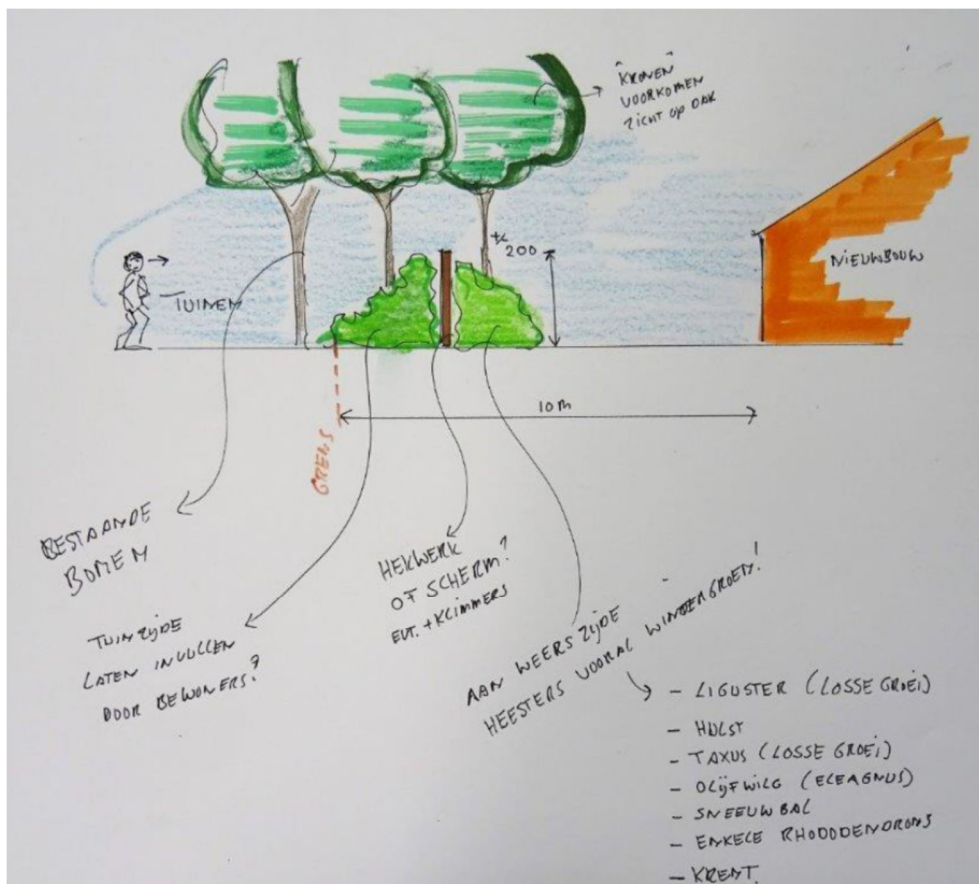 "KRONEN"
VOORKOMEN
ZICHT OP DAK
+/-
200
NIEUWBOUW
TUINEN
10 M
GRENS
BESTAANDE
BOMEN
HEKWERK
OF SCHERM?
EVT. + KLIMMERS
TUINZIJDE
LATEN INVULLEN
DOOR BEWONERS?
AAN WEERSZIJDE
HEESTERS VOORAL WINTERGROEN!
- LIGUSTER (LOSSE GROEI)
- HULST
- TAXUS (LOSSE GROEI)
- OLIJFWILG (ELEAGNUS)
- SNEEUWBAL
- ENKELE RHODODENDRONS
- KRENT